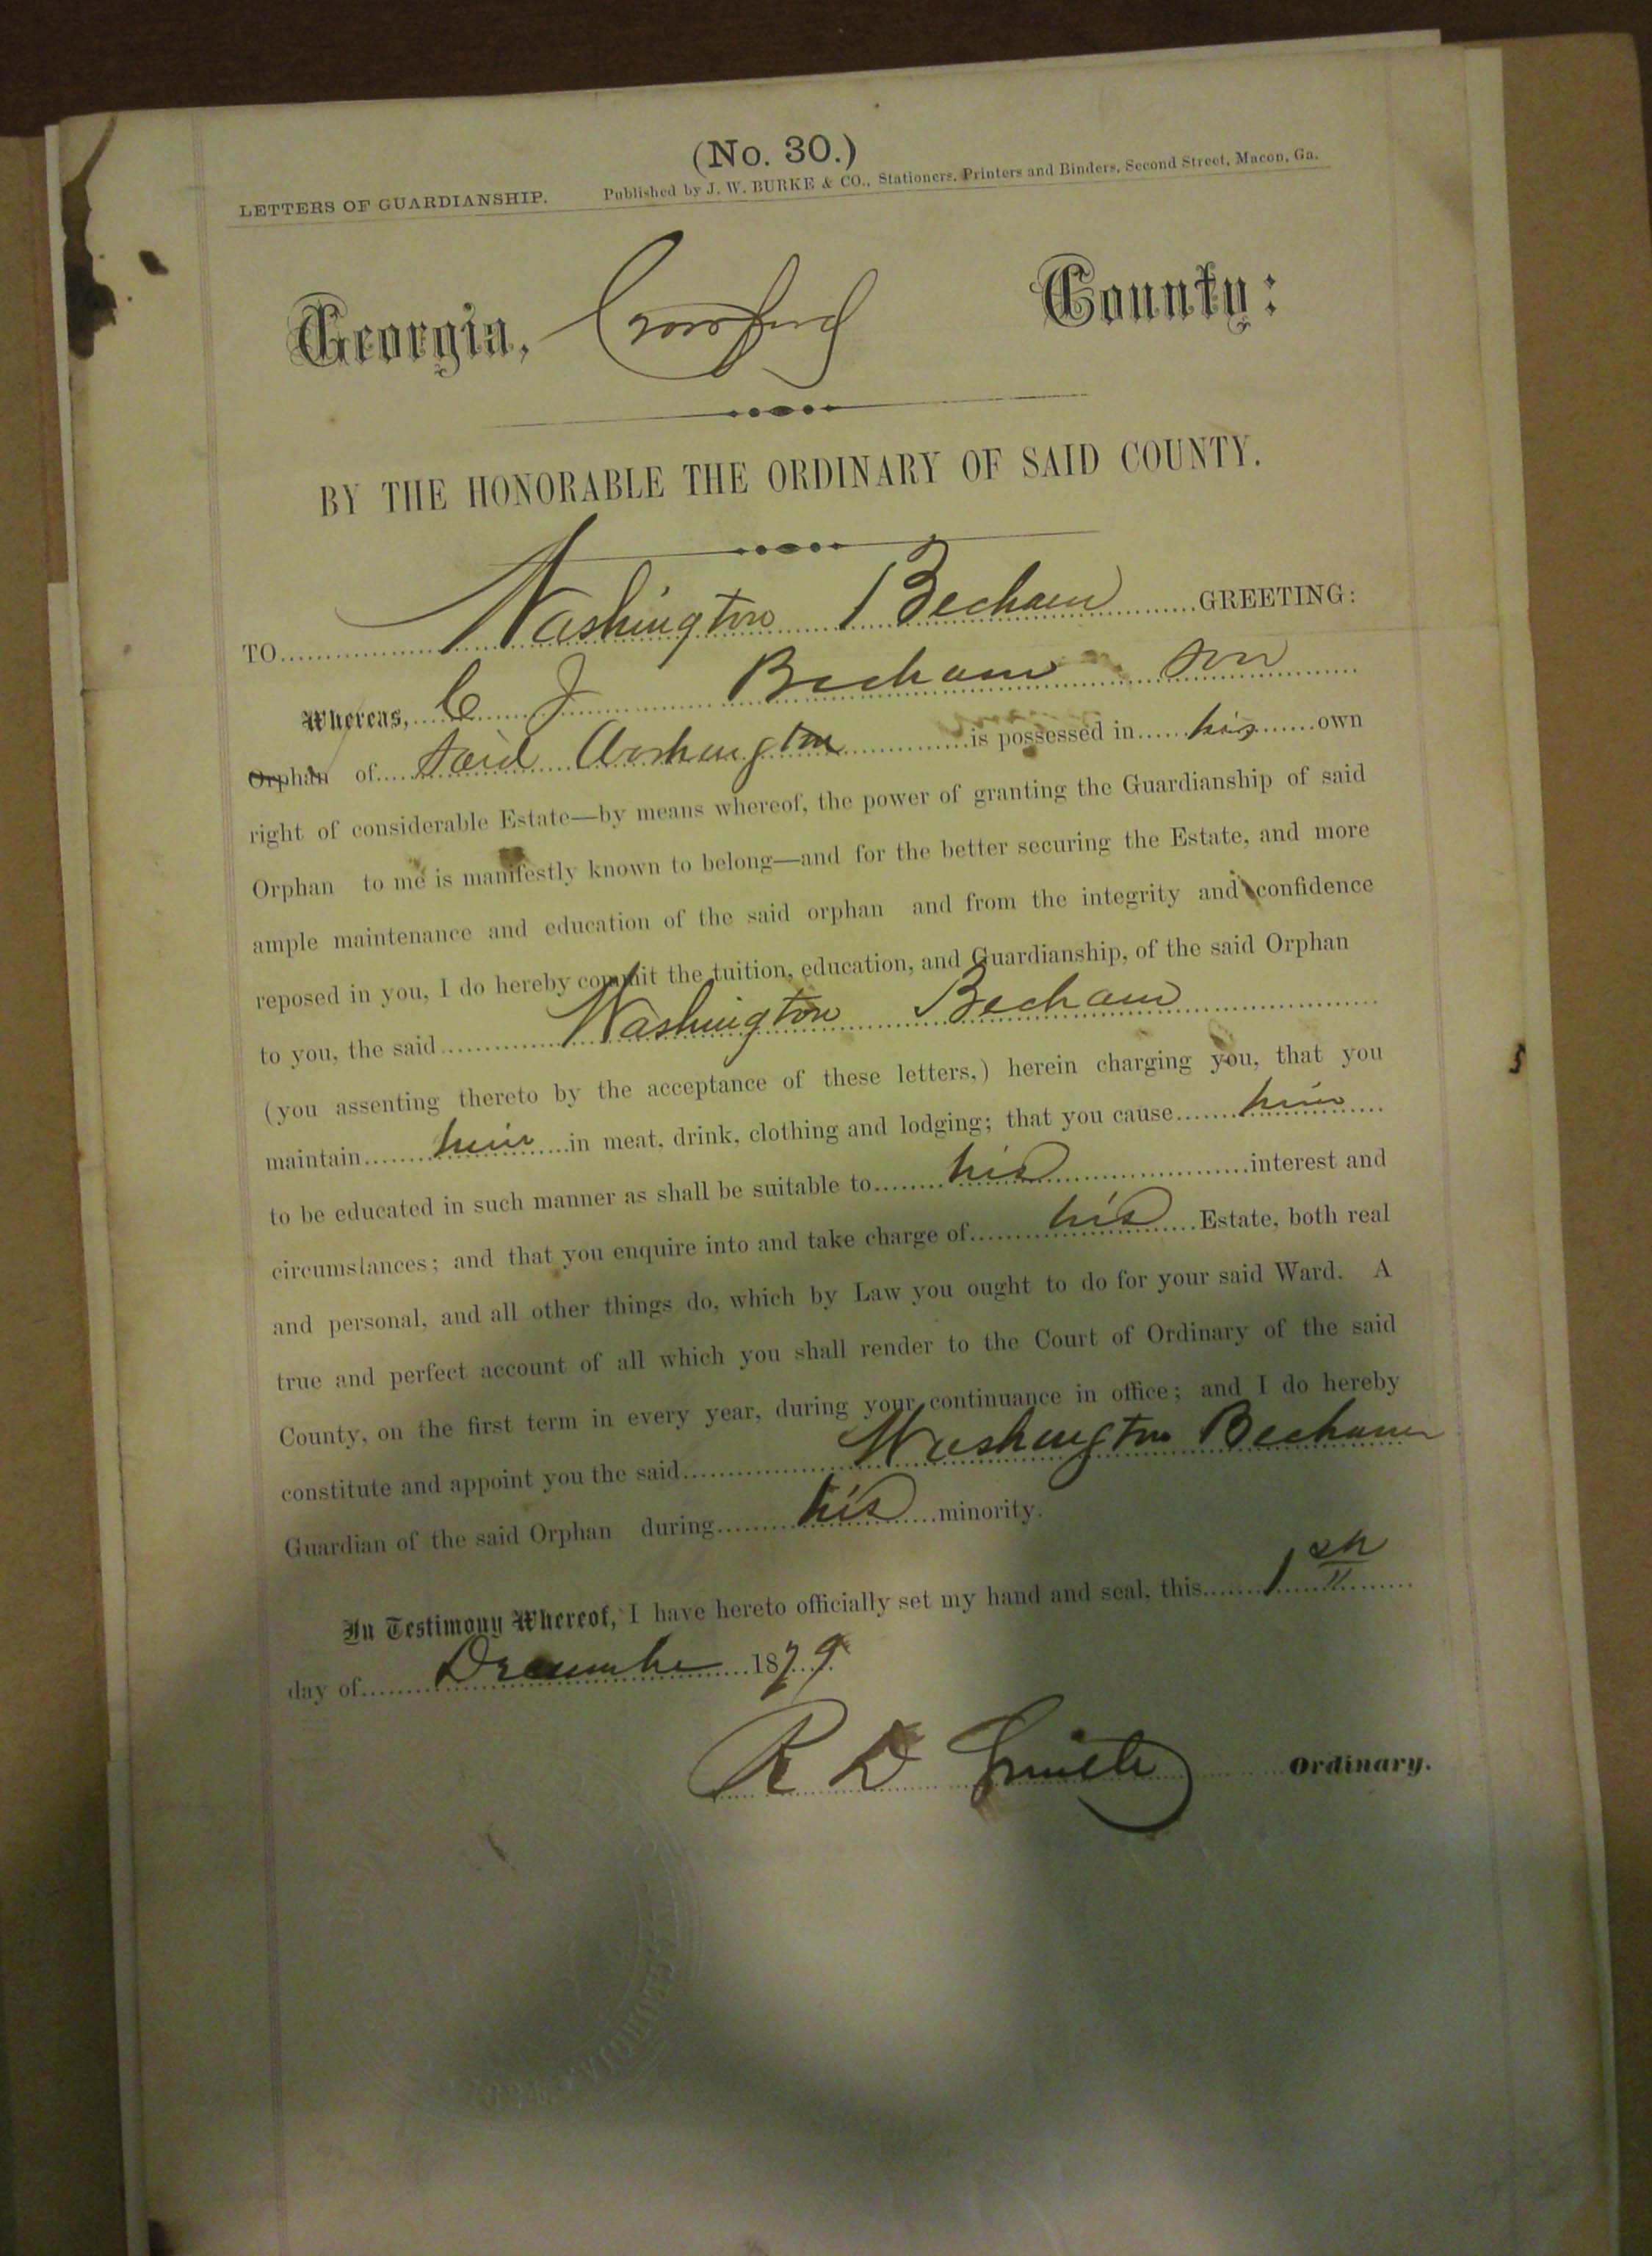 (No. 30.)
LETTERS OF GUARDIANSHIP. Published by J. W. BURKE & CO., Stationers, Printers and Binders, Second Street, Macon, Ga.
Georgia, Crawford County:
BY THE HONORABLE THE ORDINARY OF SAID COUNTY.
TO Washington Becham GREETING:
Whereas, C J Becham son
Orphan of said Washington is possessed in his own
right of considerable Estate—by means whereof, the power of granting the Guardianship of said
Orphan to me is manifestly known to belong—and for the better securing the Estate, and more
ample maintenance and education of the said orphan and from the integrity and confidence
reposed in you, I do hereby commit the tuition, education, and Guardianship, of the said Orphan
to you, the said Washington Becham
(you assenting thereto by the acceptance of these letters,) herein charging you, that you
maintain him in meat, drink, clothing and lodging; that you cause him
to be educated in such manner as shall be suitable to his interest and
circumstances; and that you enquire into and take charge of his Estate, both real
and personal, and all other things do, which by Law you ought to do for your said Ward. A
true and perfect account of all which you shall render to the Court of Ordinary of the said
County, on the first term in every year, during your continuance in office; and I do hereby
constitute and appoint you the said Washington Becham
Guardian of the said Orphan during his minority.
In Testimony Whereof, I have hereto officially set my hand and seal, this 1st
day of December 1879
R D Smith Ordinary.
GEORGIA